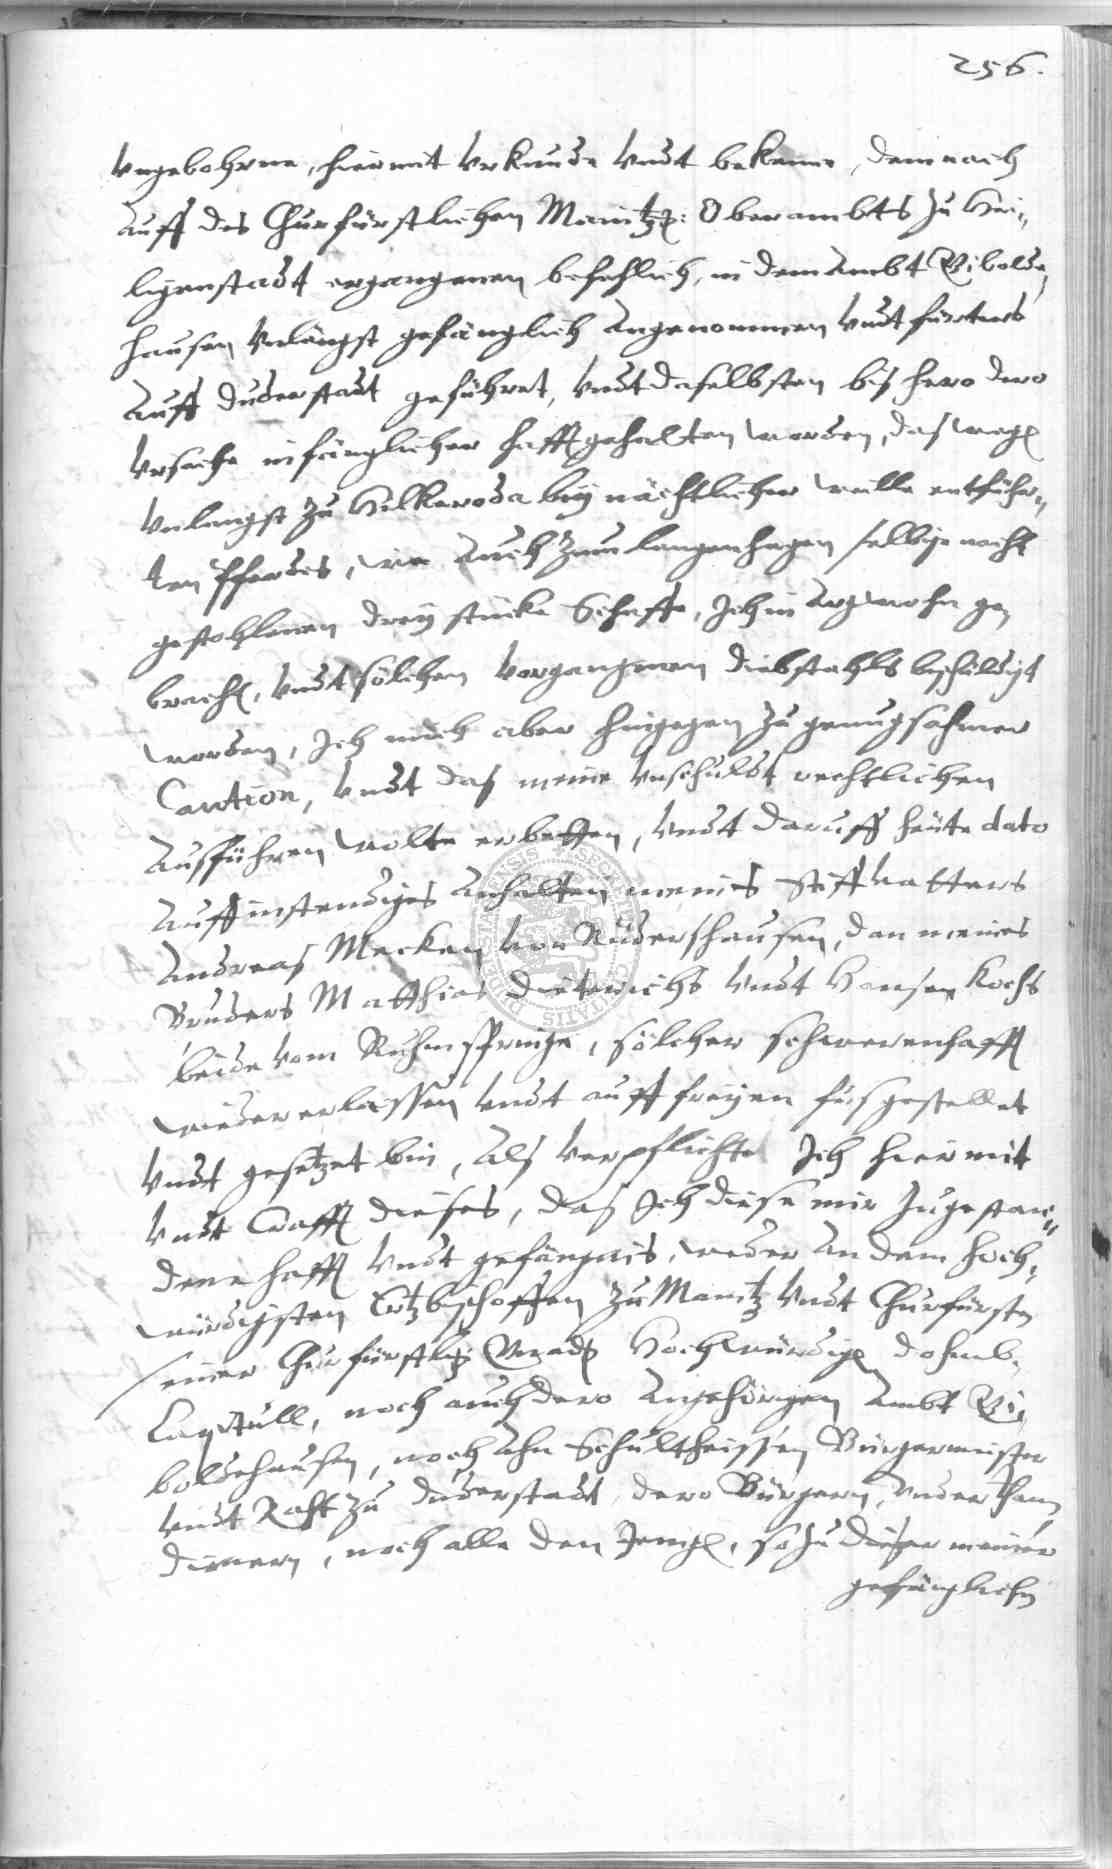 256.
Vngebohrne, hiermit Vrkunde Vndt bekenne, demnach
auff des Churfürstlichen Maintz: Oberambts zu Hei-
ligenstadt ergangenen befehlich, in dem Ambt Gibolde-
hausen Vnlängst gefänglich angenommen Vndt fürters
auff Duderstadt geführet, Vndt daselbsten biß hero dero
Vrsache in fänglicher hafft gehalten worden, daß wegen
Vnlangst zu Hilkeroda bey nächtlicher weille entführ-
ten Pferdes, wie auch zum langenhagen selbige nacht
gestohlenen drey stücke Schaffe, Ich in argwohn ge-
bracht, Vndt solchen Vorgangenen diebstahls beschuldigt
worden, Ich mich aber hingegen zu genugsahmer
Caution, Vndt daß meine Vnschuldt rechtlichen
ausführen wolte erbotten, Vndt daruff heute dato
auff instendiges anhalten meines Stiffvatters
Andreaß Mecken Von Rüdershausen, dan meines
Bruders Matthias Dieterichs Vndt Hansen Kochs
beide vom Ruhmspringe, solcher schwerenhafft
wieder erlassen Vndt auff freyen fus gestellet
Vndt gesetzet bin, Alß Verpflichte Ich hiermit
Vndt Crafft dieses, daß Ich diese mir zugestan-
dene hafft Vndt gefängnis, weder an dem hoch-
würdigsten Ertzbischoffen zu Maintz Vndt Churfürsten
seiner Churfürstlichen Gnaden Hochwürdigen dohmb-
Capittull, noch auch dero angehörigen Ambt Gi-
boldehausen, noch ahn Schultheissen Bürgermeister
Vndt Raht zu Duderstadt, dero Bürgern, Vnderthanen
dienern, noch alle den Jenigen, so zu dieser meiner
gefänglichen